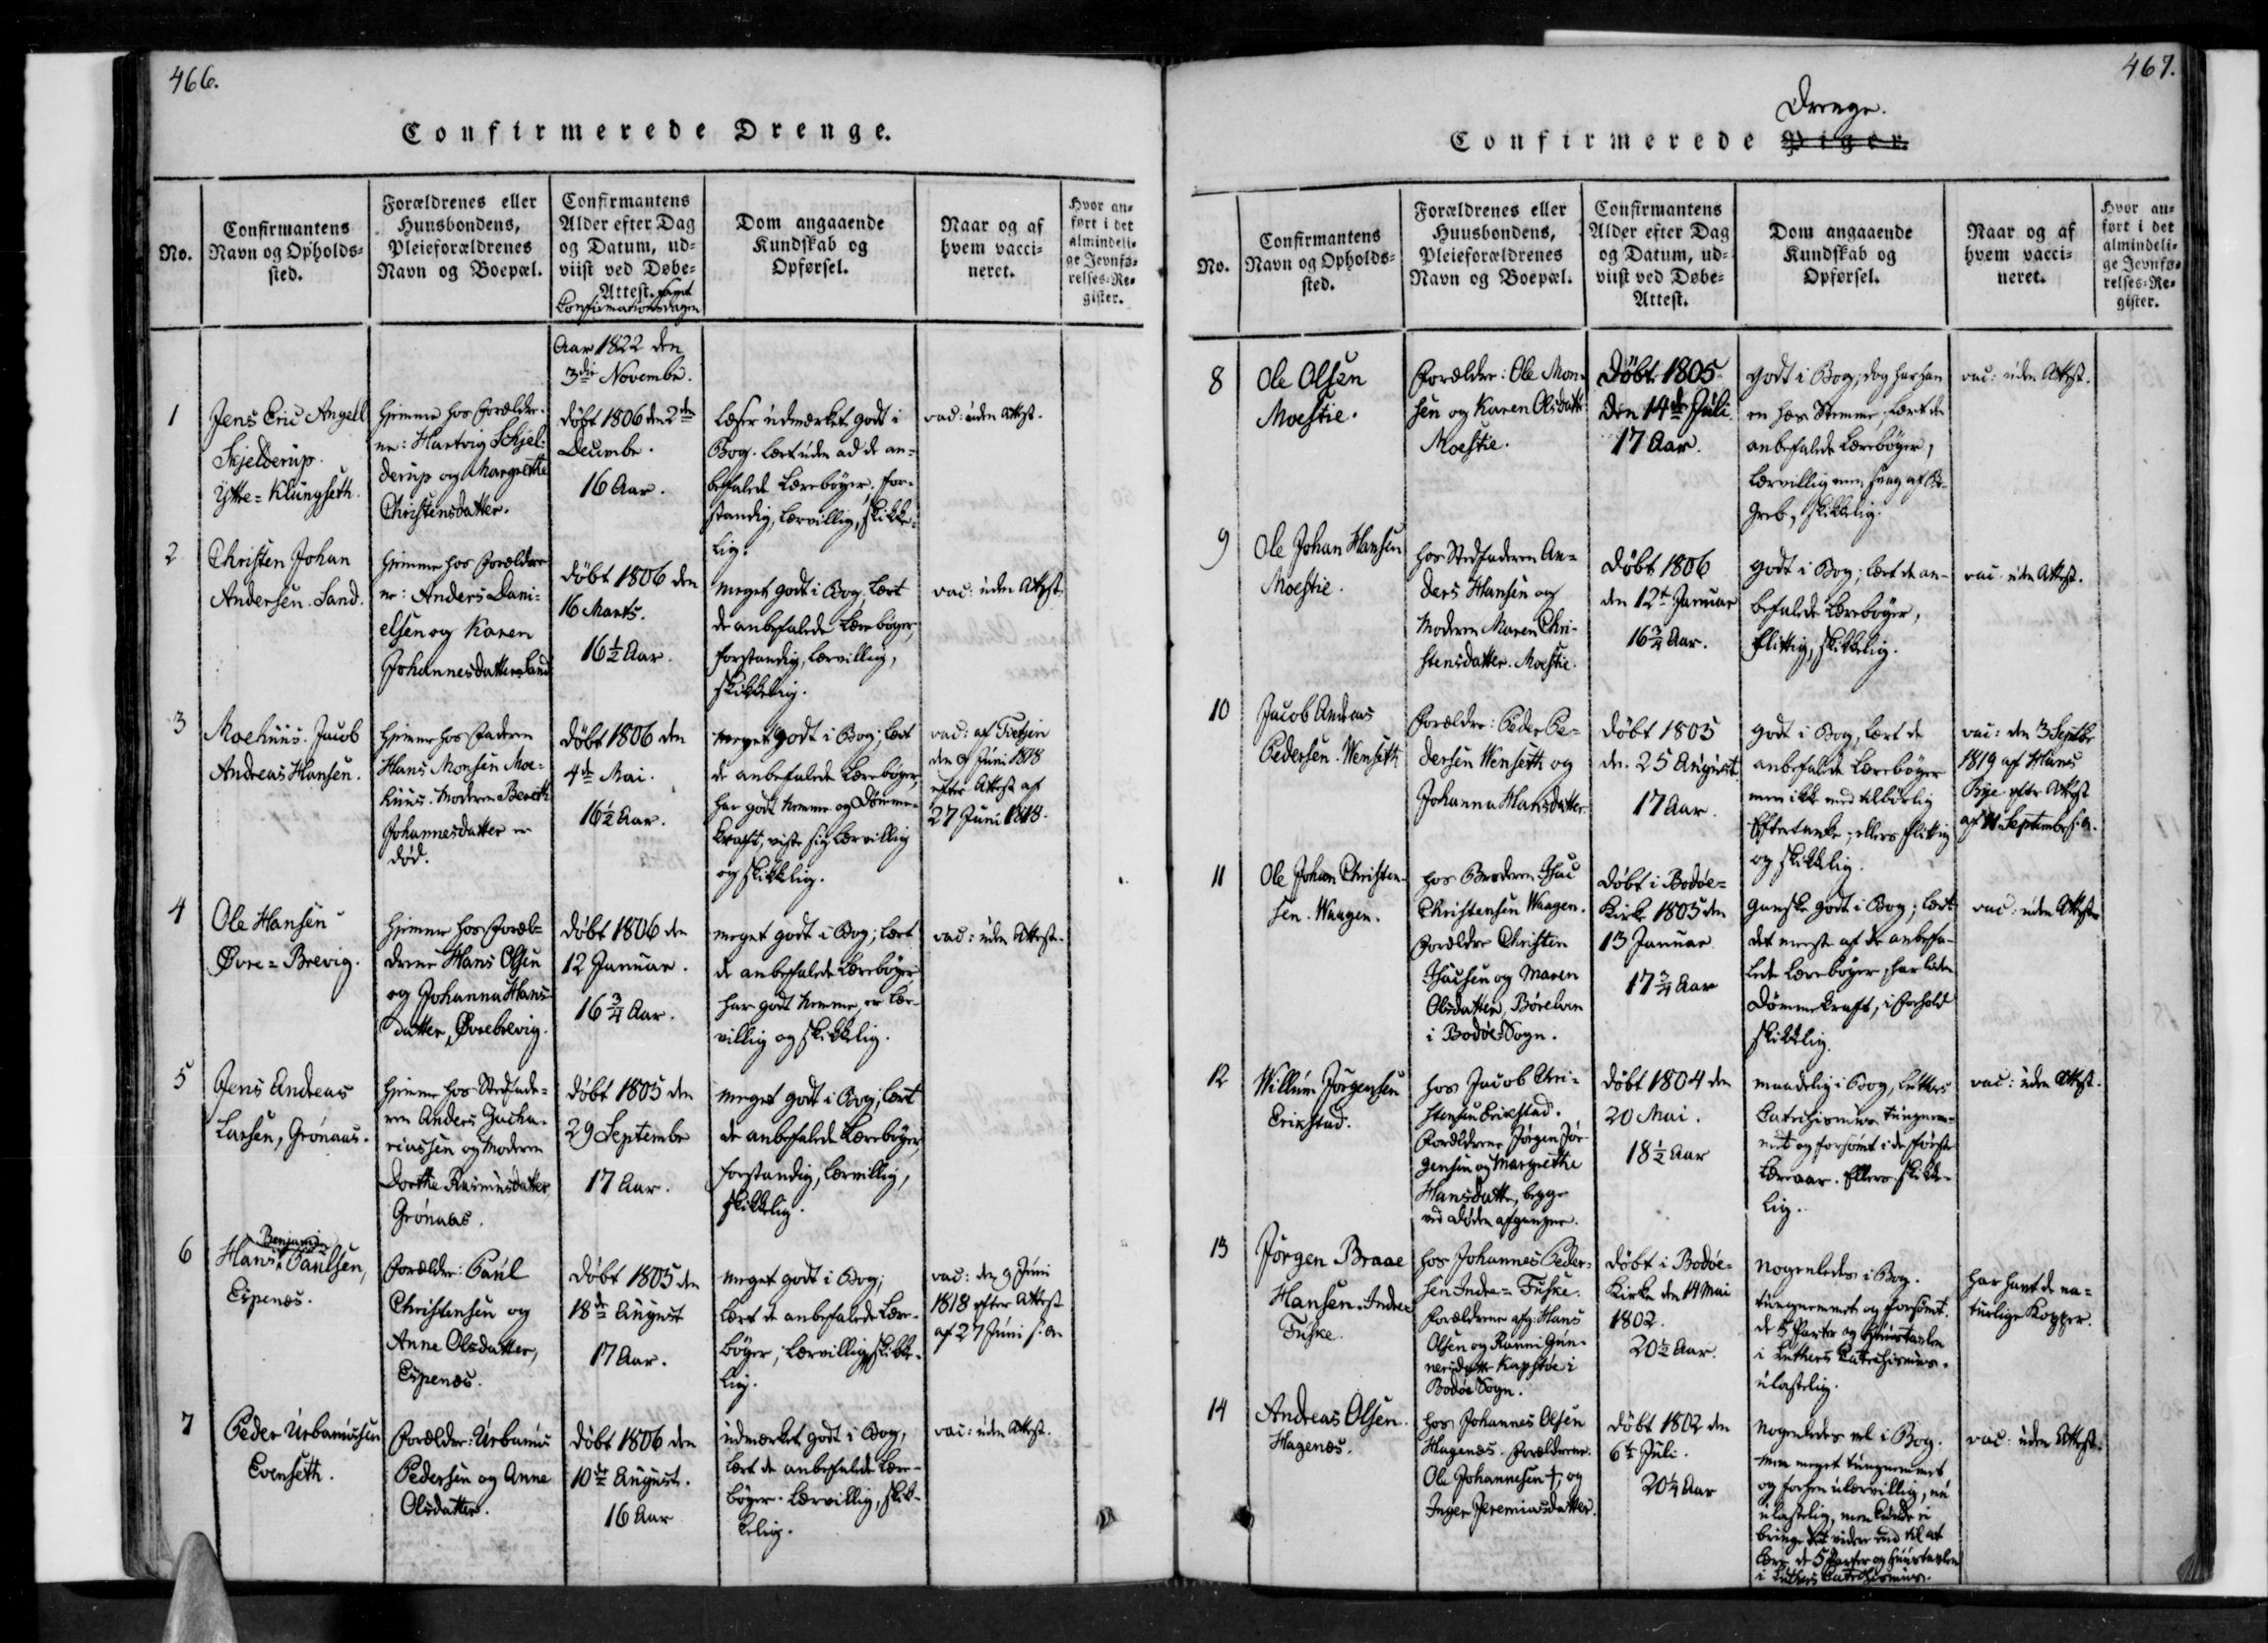 466.
Confirmerede Drenge.
No.
Confirmantens
Navn og Opholds-
sted.
Forældrenes eller
Huusbondens,
Pleieforældrenes
Navn og Boepæl.
Confirmantens
Alder efter Dag
og Datum, ud-
viist ved Døbe-
Attest. samt
Confirmationsdagen
Dom angaaende
Kundskab og
Opførsel.
Naar og af
hvem vacci-
neret.
Hvor an-
ført i det
almindeli-
ge Jevnfø-
relses-Re-
gister.
Aar 1822 den
3die Novembr.
1
Jens Eric Angell
Skjelderup.
Ytte=Klungseth.
hjemme hos Forældre-
ne: Hartvig Schjel-
derup og Margrethe
Christensdatter.
døbt 1806 den 2den
Decembr.
16 Aar.
Læser udmærket godt i
Bog. Lært uden ad de an-
befalede Lærebøger. for-
standig, lærvillig, skikke-
lig.
vac: uden Attest.
2
Christen Johan
Andersen. Sand.
hjemme hos Forældre
ne: Anders Dani-
elsen og Karen
Johannesdatter Sand
døbt 1806 den
16 Marts.
16½ Aar.
meget godt i Bog, lært
de anbefalede Lærebøger,
forstandig, lærvillig,
skikkelig.
vac: uden Attest.
3
Moehuus. Jacob
Andreas Hansen.
hjemme hos Faderen
Hans Monsen Moe-
huus. Moderen Bereth
Johannesdatter er
død.
døbt 1806 den
4de Mai.
16½ Aar.
meget godt i Bog; lært
de anbefalede Lærebøger,
har godt Nemme og Dømme-
kraft, viste sig lærvillig
og skikkelig.
vac: af Tietzen
den 9 Juni 1818
efter Attest af
27 Juni 1818.
4
Ole Hansen
Øvre=Brevig.
hjemme hos Foræl-
drene Hans Olsen
og Johanna Hans-
datter, Øvrebrevig.
døbt 1806 den
12 Januar.
16¾ Aar.
meget godt i Bog; lært
de anbefalede Lærebøger,
har godt Nemme, er lær-
villig og skikkelig.
vac: uden Attest.
5
Jens Andreas
Larsen, Grønaas.
hjemme hos Stedfade-
ren Anders Zacha-
riassen og Moderen
Dorthe Rasmusdatter
Grønaas.
døbt 1805 den
29 Septembr
17 Aar.
meget godt i Bog, lært
de anbefalede Lærebøger,
forstandig, lærvillig,
skikkelig.
6
Benjamin
Hans Paulsen,
Espenæs.
Forældre: Paul
Christensen og
Anne Olsdatter,
Espenæs.
døbt 1805 den
18de August
17 Aar.
meget godt i Bog;
lært de anbefalede Lære-
bøger, lærvillig, skikke-
lig.
vac: den 9 Juni
1818 efter Attest
af 27 Juni s. A.
7
Peder Urbanussen
Evenseth.
Forældre: Urbanus
Pedersen og Anne
Olsdatter.
døbt 1806 den
10de August.
16 Aar
udmærket godt i Bog,
lært de anbefalede Lære-
bøger. Lærvillig, skik-
kelig.
vac: uden Attest.
467.
Drenge.
Confirmerede Piger.
No.
Confirmantens
Navn og Opholds-
sted.
Forældrenes eller
Huusbondens,
Pleieforældrenes
Navn og Boepæl.
Confirmantens
Alder efter Dag
og Datum, ud-
viist ved Døbe-
Attest.
Dom angaaende
Kundskab og
Opførsel.
Naar og af
hvem vacci-
neret.
Hvor an-
ført i det
almindeli-
ge Jevnfø-
relses-Re-
gister.
8
Ole Olsen
Moestie.
Forældre: Ole Mon-
sen og Karen Olsdatt
Moestie.
Døbt 1805
den 14de Juli
17 Aar.
godt i Bog; dog har han
en hæs Stemme, lært de
anbefalede Lærebøger,
lærvillig men svag af Be-
greb, skikkelig.
vac: uden Attest.
9
Ole Johan Hansen
Moestie.
hos Stedfaderen An-
ders Hansen og
Moderen Maren Chri-
stensdatter. Moestie.
Døbt 1806
den 12te Januar
16¾ Aar.
godt i Bog; lært de an-
befalede Lærebøger,
flittig, skikkelig.
vac. uden Attest.
10
Jacob Andreas
Pedersen. Wenseth
Forældre: Peder Pe-
dersen Wenseth og
Johanna Hansdatter.
døbt 1805
den 25 August
17 Aar.
godt i Bog, lært de
anbefalede Lærebøger
men ikke med tilbørlig
Eftertanke; ellers flittig
og skikkelig.
vac: den 3 Septbr
1819 af Hans
Bye efter Attest
af 11 Septembr s. A.
11
Ole Johan Christen-
sen. Waagen.
hos Broderen Isac
Christensen Waagen.
Forældre Christen
Isacsen og Maren
Olsdatter, Børelven
i Bodøe Sogn.
døbt i Bodøe-
Kirke 1805 den
13 Januar
17¾ Aar
ganske godt i Bog; lært
det meeste af de anbefa-
lede Lærebøger, har liden
Dømmekraft, i Forhold
skikkelig.
vac: uden Attest
12
Willum Jørgensen
Erikstad.
hos Jacob Chri-
stensen Erikstad.
Forældrene Jørgen Jør-
gensen og Margrethe
Hansdatter, begge
ved døden afgangne.
døbt 1804 den
20 Mai.
18½ Aar
maadelig i Bog, Luthers
Catechismus. tungnem-
met og forsømt i de første
Læreaar. Ellers skikke-
lig.
vac: uden Attest.
13
Jørgen Braae
Hansen. Indre
Fuske.
hos Johannes Peder-
sen Indre=Fuske.
Forældrene afg: Hans
Olsen og Ranni Gun-
nersdatter Kapstøe i
Bodøe Sogn.
døbt i Bodøe-
Kirke den 14 Mai
1802.
20½ Aar.
nogenledes i Bog.
tungnemmet og forsømt.
de 5 Parter og Huustavlen
i Luthers Catechismus.
ulastelig.
har havt de na-
turlige Kopper.
14
Andreas Olsen.
Hagenæs.
hos Johannes Olsen
Hagenæs. Forældrene
Ole Johannesen †, og
Inger Jeremiasdatter.
døbt 1802 den
6te Juli.
20¼ Aar
nogenledes vel i Bog.
men meget tungnemmet
og forhen ulærvillig, nu
ulastelig, men kunde ei
bringe det videre end til at
lære de 5 Parter og Huustavlen
i Luthers Catechismus.
vac: uden Attest.